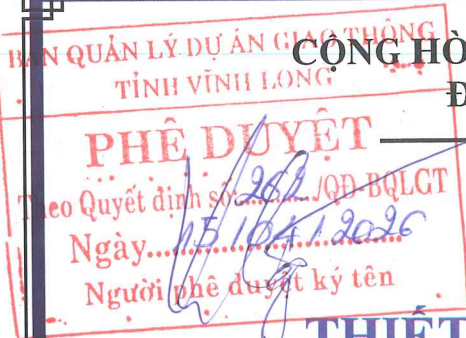 BAN QUẢN LÝ DỰ ÁN GIAO THÔNG
TỈNH VĨNH LONG
CỘNG HÒ
Đ
PHÊ DUYỆT
Theo Quyết định số 262 /QĐ-BQLGT
Ngày 15/04/2026
Người phê duyệt ký tên
THIẾT